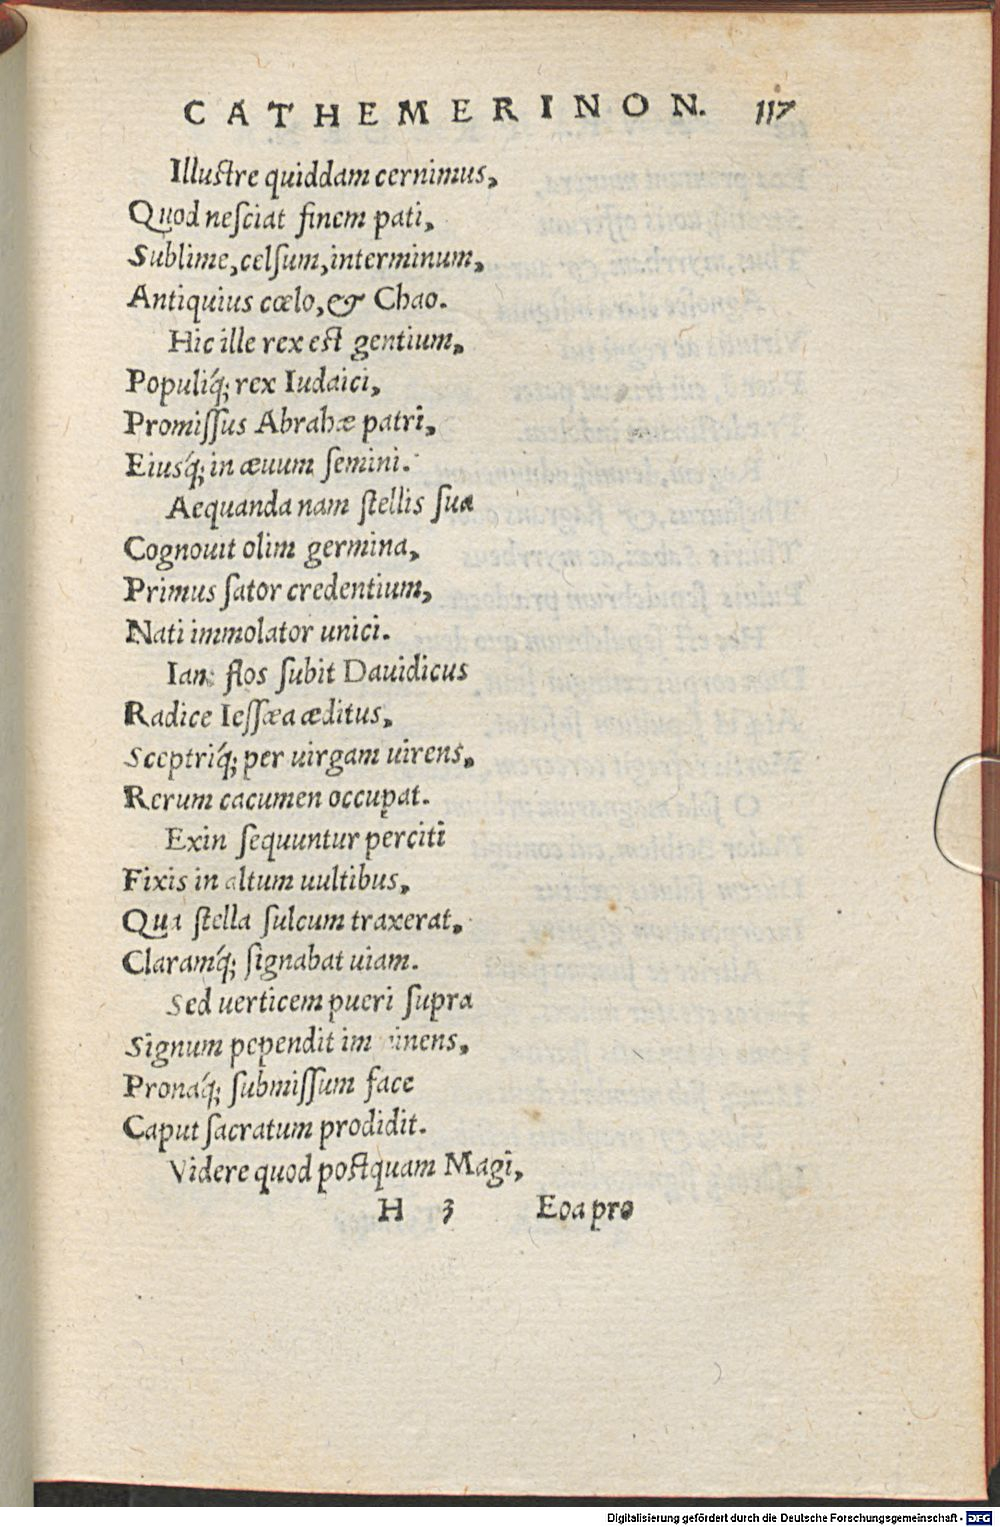 CATHEMERINON. 117
Illustre quiddam cernimus,
Quod neſciat finem pati,
Sublime, celſum, interminum,
Antiquius cœlo, & Chao.
Hic ille rex est gentium,
Populiq́; rex Iudaici,
Promiſſus Abrahæ patri,
Eiusq́; in æuum ſemini.
Aequanda nam ſtellis ſua
Cognouit olim germina,
Primus ſator credentium,
Nati immolator unici.
Iam flos ſubit Dauidicus
Radice Ieſſæa æditus,
Sceptriq́; per uirgam uirens,
Rerum cacumen occupat.
Exin ſequuntur perciti
Fixis in altum uultibus,
Qua ſtella ſulcum traxerat,
Claramq́; ſignabat uiam.
Sed uerticem pueri ſupra
Signum pependit im inens,
Pronaq́; ſubmiſſum face
Caput ſacratum prodidit.
Videre quod poſtquam Magi,
H 3 Eoa pro
Digitalisierung gefördert durch die Deutsche Forschungsgemeinschaft - DFG